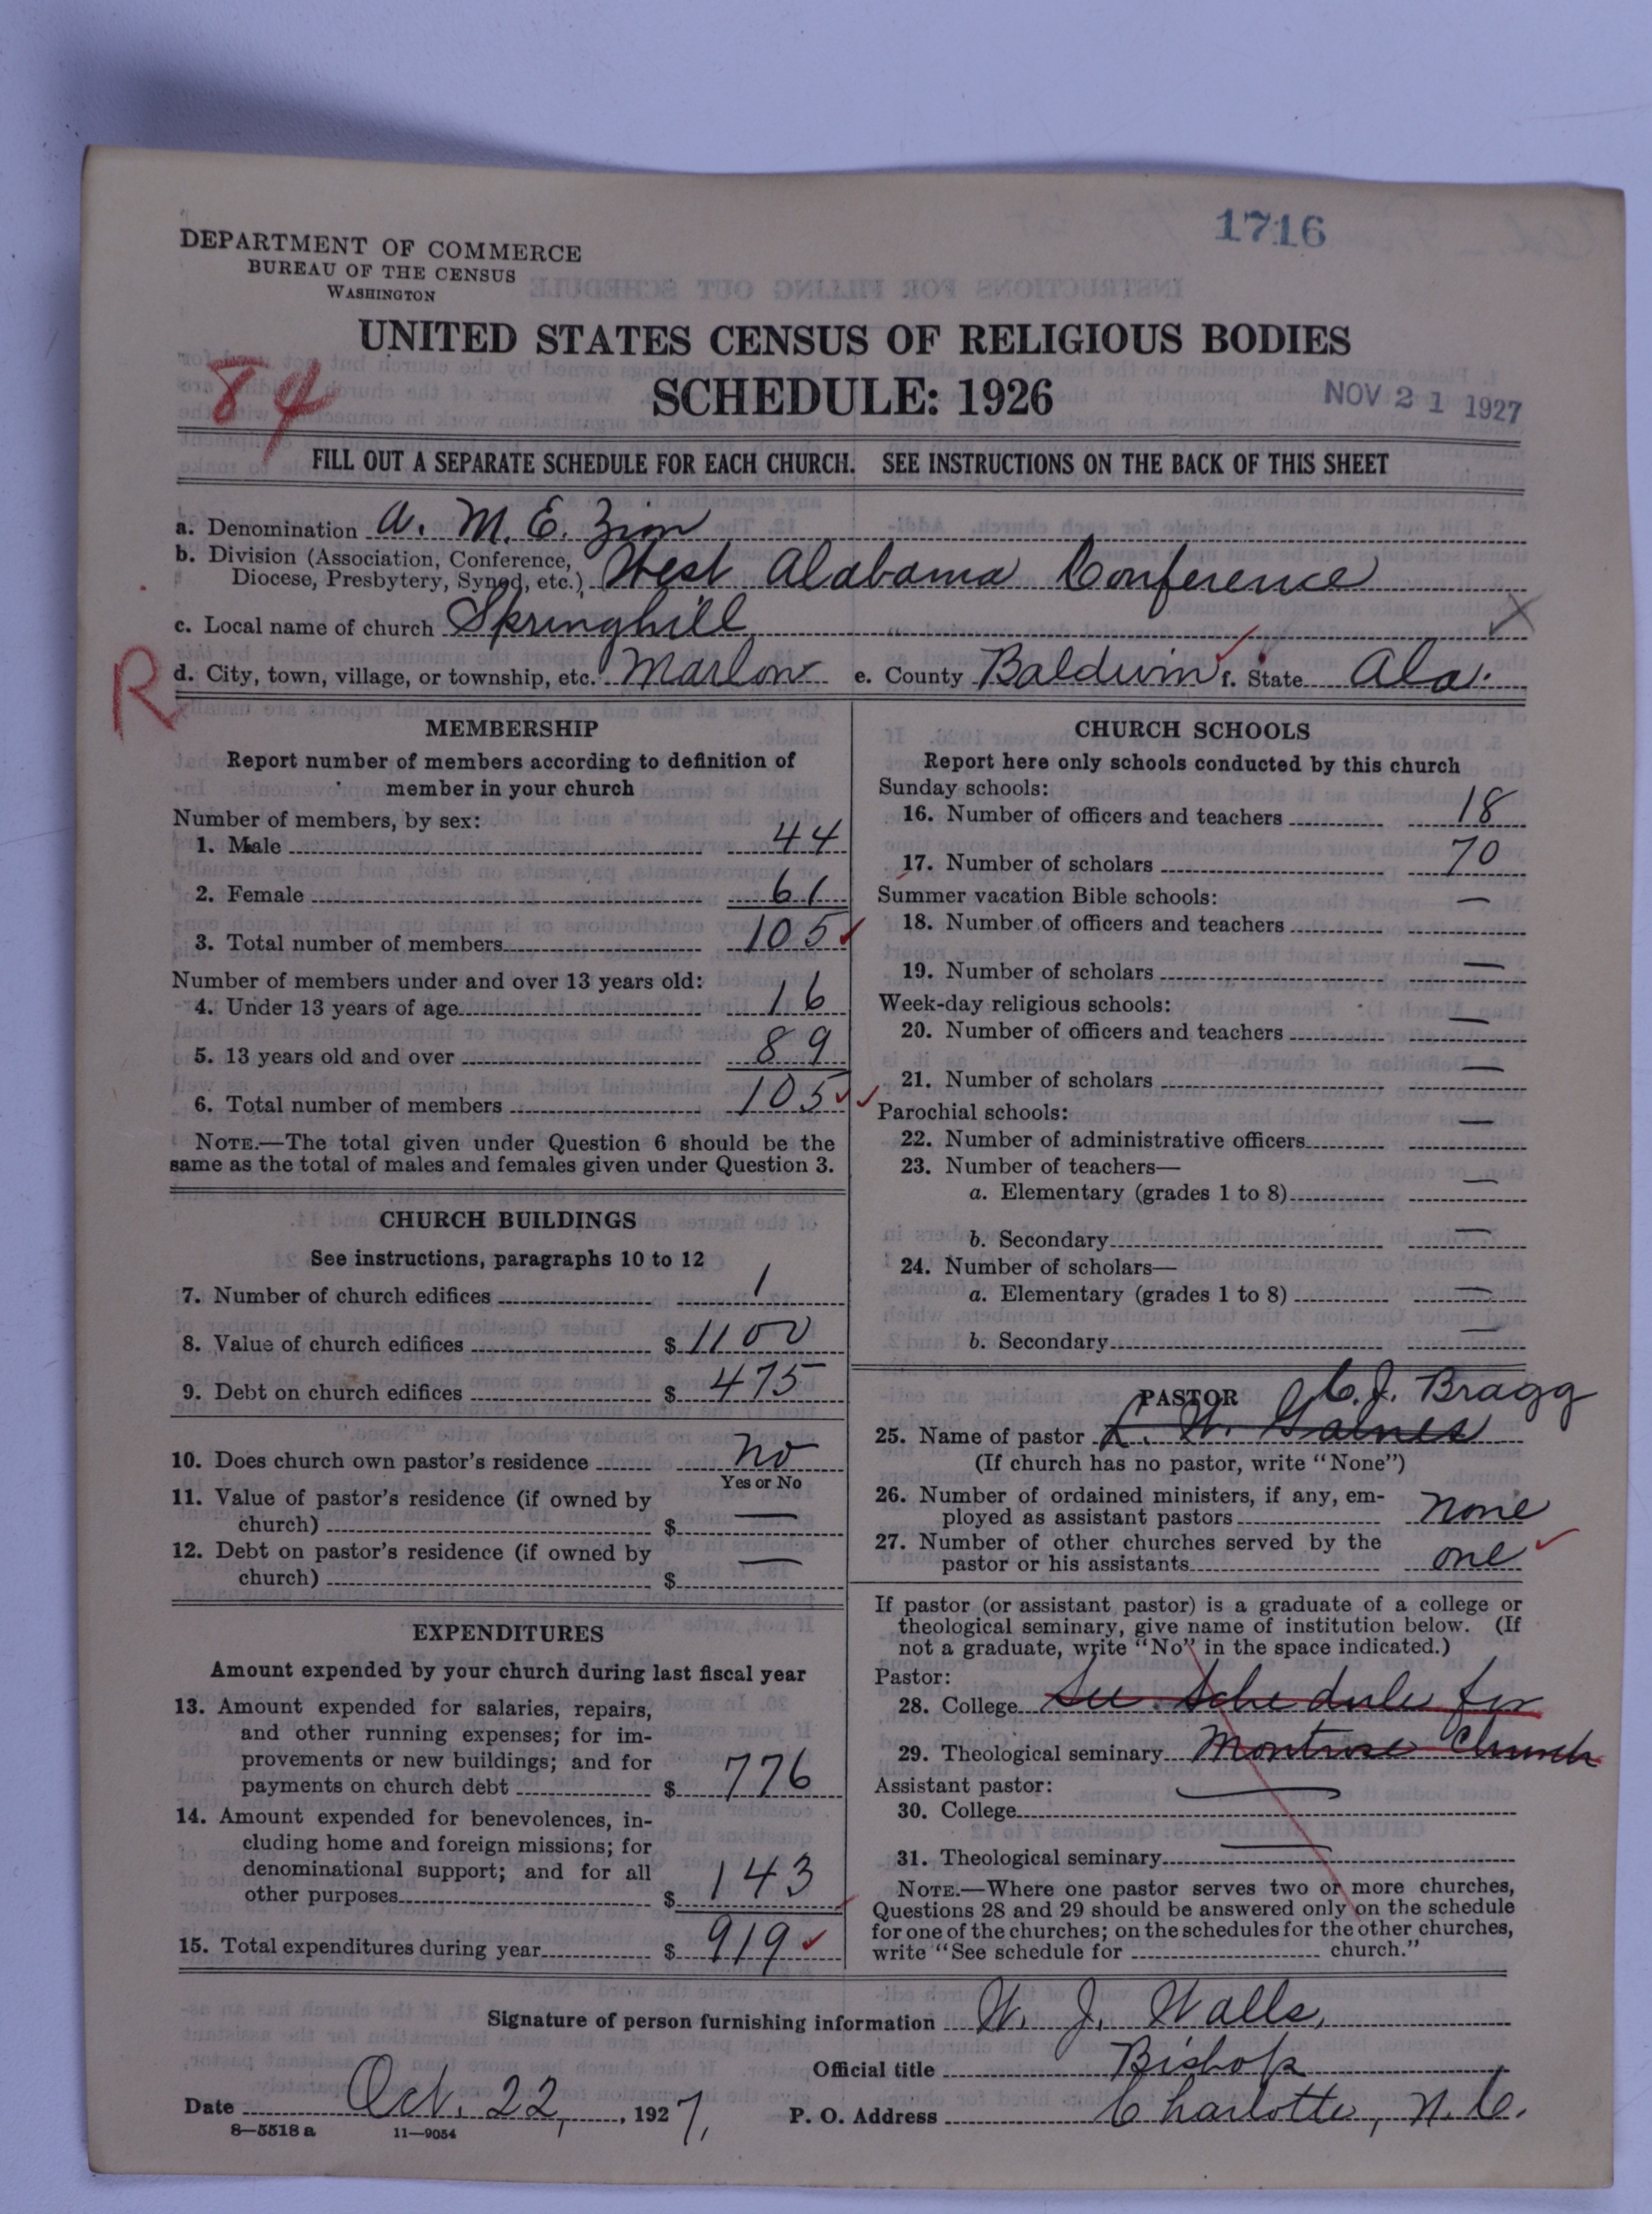 1716
DEPARTMENT OF COMMERCE
BUREAU OF THE CENSUS
WASHINGTON
UNITED STATES CENSUS OF RELIGIOUS BODIES
84
SCHEDULE: 1926
NOV 21 1927
FILL OUT A SEPARATE SCHEDULE FOR EACH CHURCH. SEE INSTRUCTIONS ON THE BACK OF THIS SHEET
a. Denomination A. M. E. Zion
b. Division (Association, Conference,
Diocese, Presbytery, Synod, etc.) West Alabama Conference
c. Local name of church Springhill
R
d. City, town, village, or township, etc. Marlow e. County Baldwin f. State Ala.
MEMBERSHIP
Report number of members according to definition of
member in your church
Number of members, by sex:
1. Male 44
2. Female 61
3. Total number of members 105
Number of members under and over 13 years old:
4. Under 13 years of age 16
5. 13 years old and over 89
6. Total number of members 105
NOTE.—The total given under Question 6 should be the
same as the total of males and females given under Question 3.
CHURCH BUILDINGS
See instructions, paragraphs 10 to 12
7. Number of church edifices 1
8. Value of church edifices $ 1100
9. Debt on church edifices $ 475
10. Does church own pastor's residence no
Yes or No
11. Value of pastor's residence (if owned by
church) $ —
12. Debt on pastor's residence (if owned by
church) $ —
EXPENDITURES
Amount expended by your church during last fiscal year
13. Amount expended for salaries, repairs,
and other running expenses; for im-
provements or new buildings; and for
payments on church debt $ 776
14. Amount expended for benevolences, in-
cluding home and foreign missions; for
denominational support; and for all
other purposes $ 143
15. Total expenditures during year $ 919
CHURCH SCHOOLS
Report here only schools conducted by this church
Sunday schools:
16. Number of officers and teachers 18
17. Number of scholars 70
Summer vacation Bible schools:
18. Number of officers and teachers —
19. Number of scholars —
Week-day religious schools:
20. Number of officers and teachers —
21. Number of scholars —
Parochial schools:
22. Number of administrative officers —
23. Number of teachers—
a. Elementary (grades 1 to 8) —
b. Secondary —
24. Number of scholars—
a. Elementary (grades 1 to 8) —
b. Secondary —
PASTOR C. J. Bragg
25. Name of pastor W. Gaines
(If church has no pastor, write "None")
26. Number of ordained ministers, if any, em-
ployed as assistant pastors none
27. Number of other churches served by the
pastor or his assistants one
If pastor (or assistant pastor) is a graduate of a college or
theological seminary, give name of institution below. (If
not a graduate, write "No" in the space indicated.)
Pastor:
28. College See Schedule for
29. Theological seminary Montrose Church
Assistant pastor:
30. College —
31. Theological seminary —
NOTE.—Where one pastor serves two or more churches,
Questions 28 and 29 should be answered only on the schedule
for one of the churches; on the schedules for the other churches,
write "See schedule for ---------- church."
Signature of person furnishing information W. J. Walls,
Official title Bishop
Date Oct. 22, 1927, P. O. Address Charlotte, N. C.
8—5518 a 11—9054